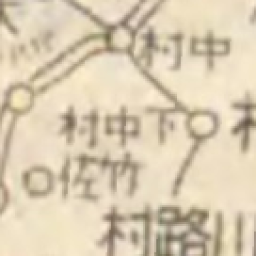 村中
村中下
佐竹
村路川